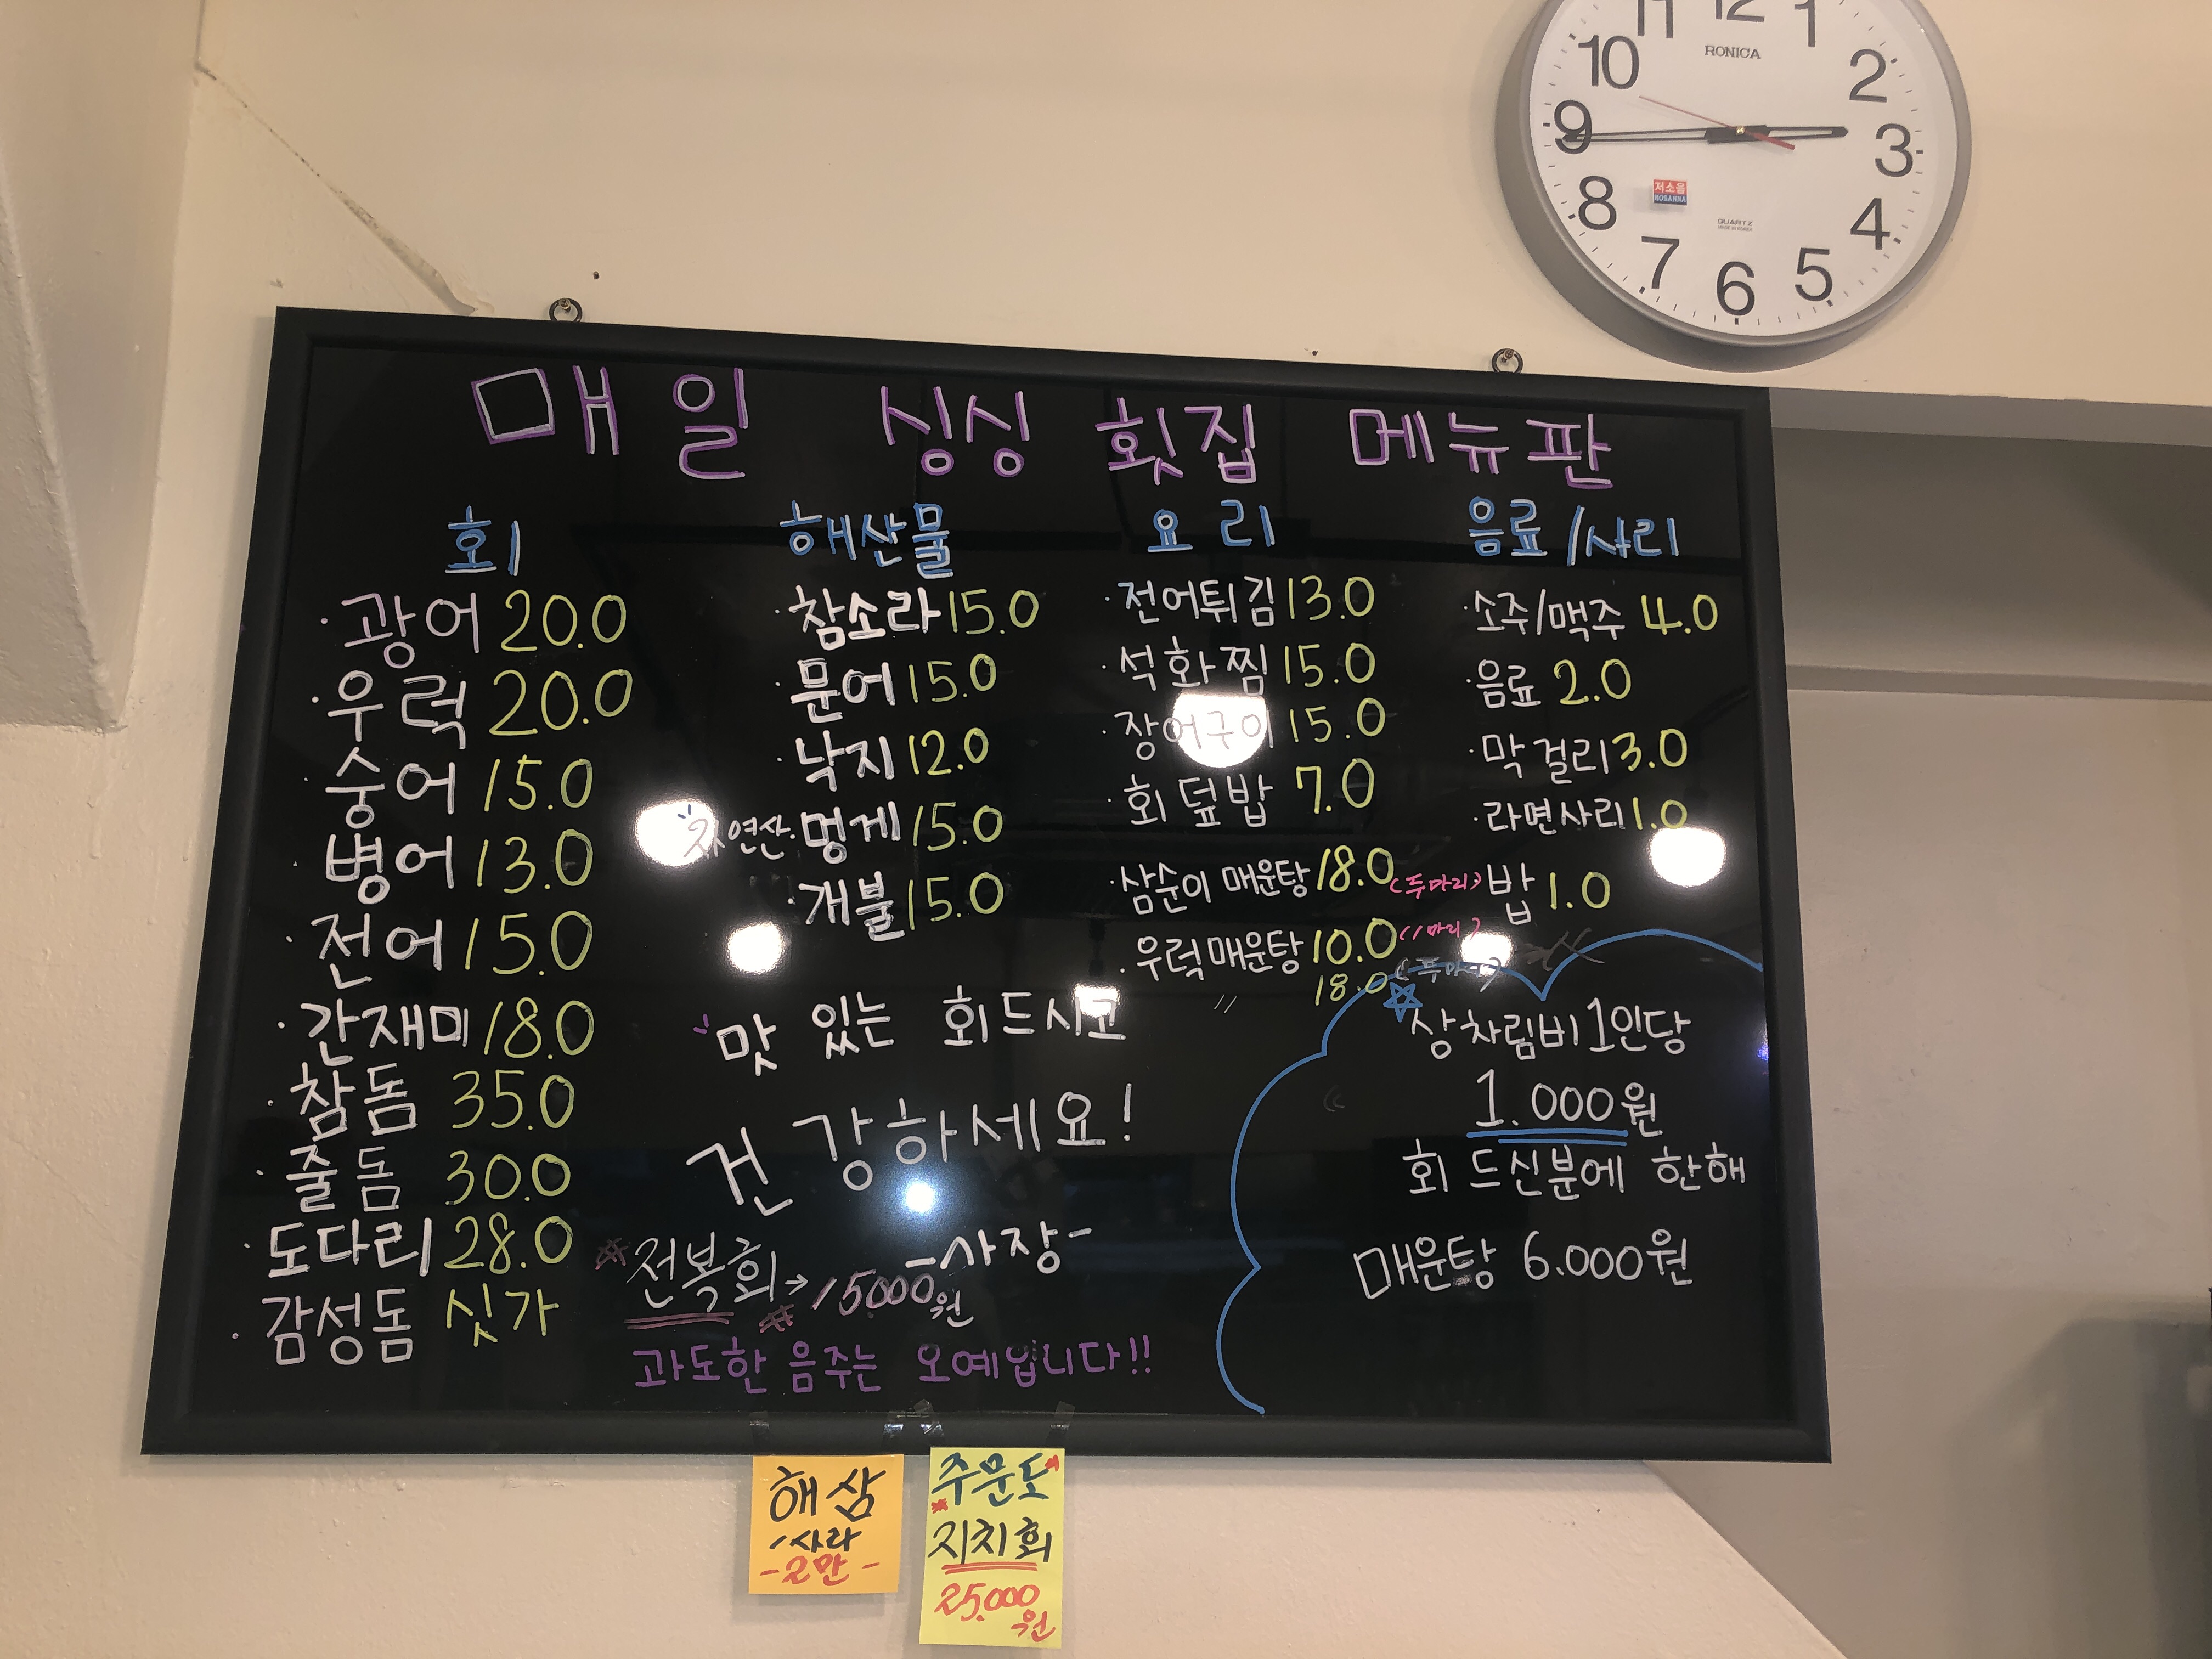 11 12 1
10 2
9 3
8 4
7 6 5
RONICA
저소음
HOSANNA
QUARTZ
MADE IN KOREA
매일 싱싱 횟집 메뉴판
회
·광어 20.0
·우럭 20.0
·숭어 15.0
·병어 13.0
·전어 15.0
·간재미 18.0
·참돔 35.0
·줄돔 30.0
·도다리 28.0
·감성돔 싯가
해산물
·참소라 15.0
·문어 15.0
·낙지 12.0
자연산·멍게 15.0
·개불 15.0
요리
·전어튀김 13.0
·석화찜 15.0
·장어구이 15.0
·회덮밥 7.0
·삼순이 매운탕 18.0 (두마리)
·우럭매운탕 10.0 (1마리)
18.0 (두마리)
음료/사리
·소주/맥주 4.0
·음료 2.0
·막걸리 3.0
·라면사리 1.0
밥 1.0
"맛있는 회드시고"
건강하세요!
-사장-
전복회→15000원
과도한 음주는 오예입니다!!
☆상차림비 1인당
1.000원
회 드신분에 한해
매운탕 6.000원
해삼
1사라
-2만-
주문도
지치회
25.000
원